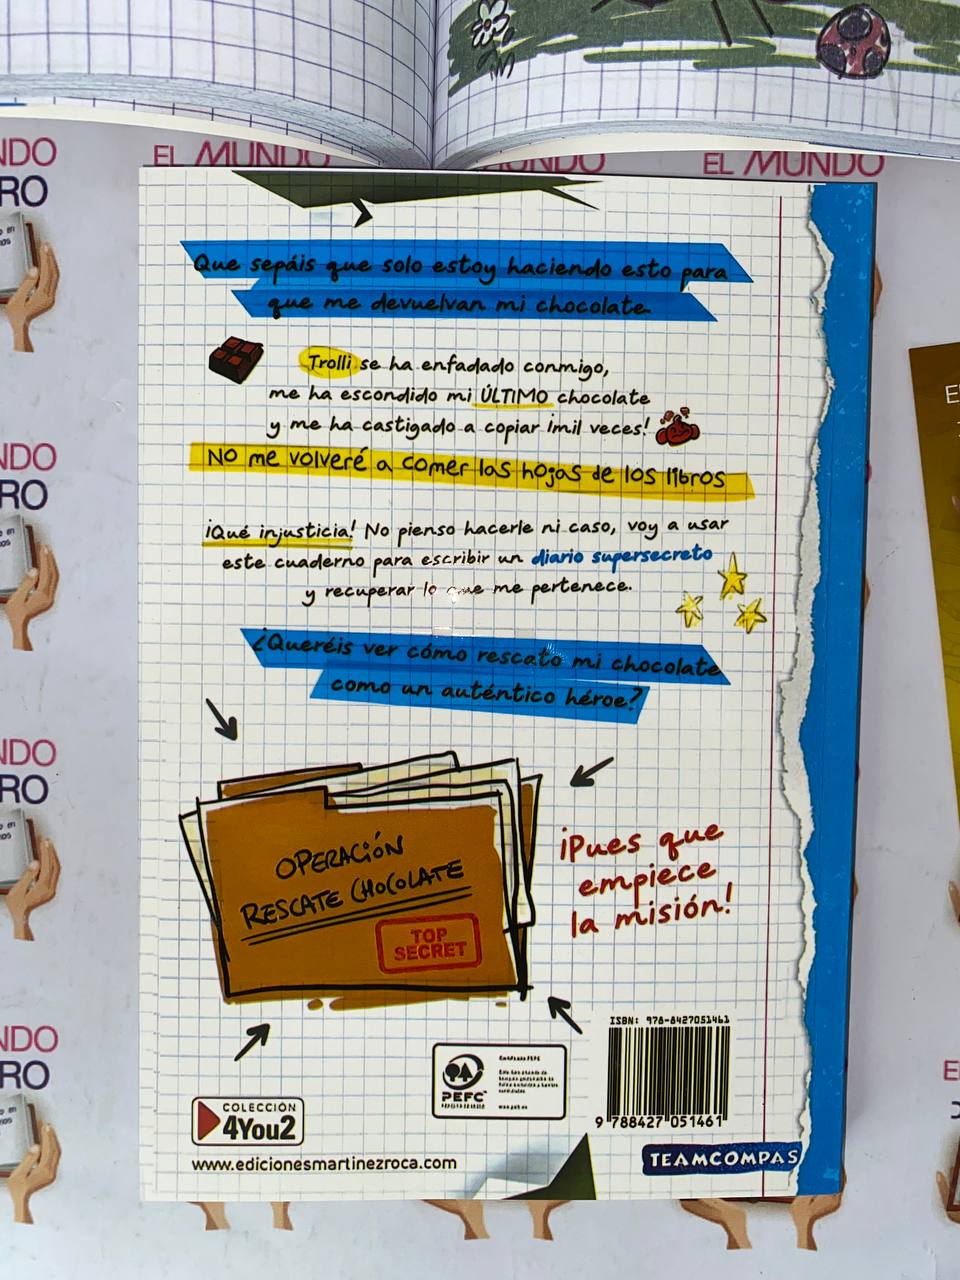 EL MUNDO
MUNDO
EL MUNDO
NDO
RO
Que sepáis que solo estoy haciendo esto para
que me devuelvan mi chocolate.
Trolli se ha enfadado conmigo,
me ha escondido mi ÚLTIMO chocolate
y me ha castigado a copiar ¡mil veces!
NO me volveré a comer las hojas de los libros
¡Qué injusticia! No pienso hacerle ni caso, voy a usar
este cuaderno para escribir un diario supersecreto
y recuperar lo que me pertenece.
¿Queréis ver cómo rescato mi chocolate
como un auténtico héroe?
NDO
RO
NDO
RO
NDO
RO
OPERACIÓN
RESCATE CHOCOLATE
TOP
SECRET
¡Pues que
empiece
la misión!
ISBN: 978-8427051461
9 788427 051461
PEFC
Certificado PEFC
www.pefc.es
COLECCIÓN
4You2
www.edicionesmartinezroca.com
TEAMCOMPAS